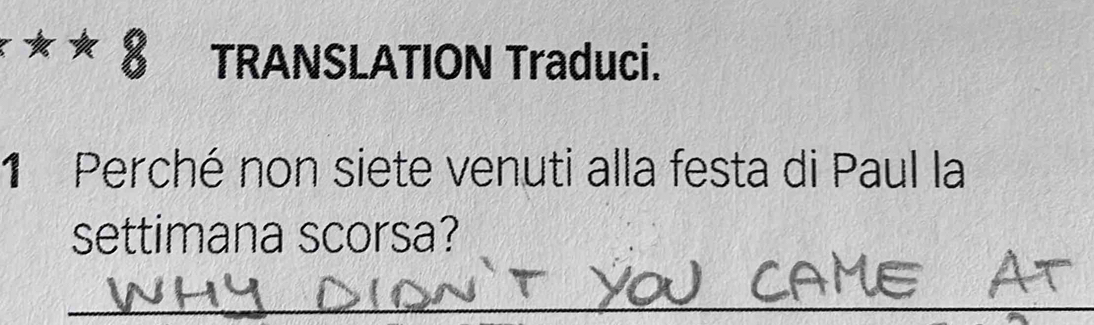 ★ ★ 8 TRANSLATION Traduci.
1 Perché non siete venuti alla festa di Paul la
settimana scorsa?
WHY DIDN'T YOU CAME AT